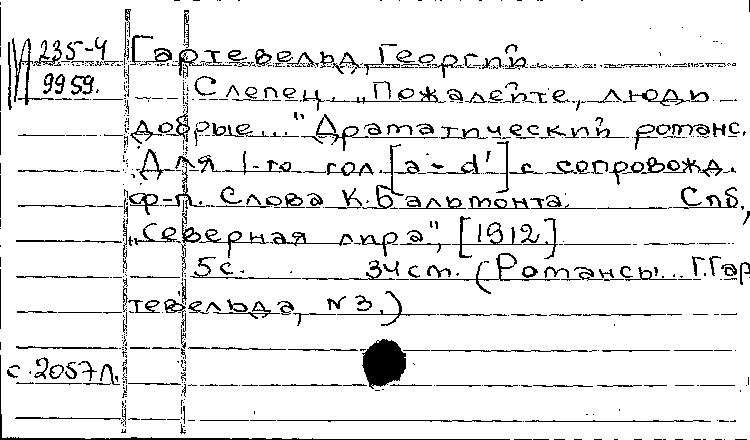 235-4 Гартевельд, Георгий
9959. Слепец. „Пожалейте, люди
добрые..." Драматический романс.
Для 1-го гол. [a - d'] с сопровожд.
ф-п. Слова К. Бальмонта. Спб.,
„Северная лира", [1912.]
5 с. 34 см. (Романсы... Г. Гар
тевельда, №3.)
с. 2057 л.